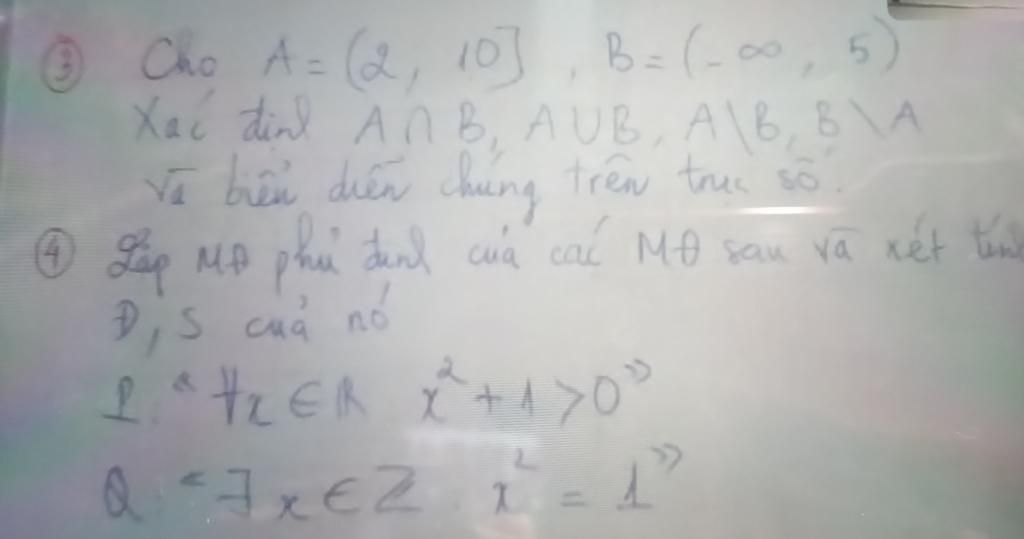 ③ Cho A = (2, 10], B = (-∞, 5)
Xác định A ∩ B, A ∪ B, A \ B, B \ A
và biểu diễn chúng trên trục số.
④ Lập MĐ phủ định của các MĐ sau và xét tính
Đ, S của nó
P. "∀x ∈ R x² + 1 > 0"
Q "∃x ∈ Z. x² = 1"